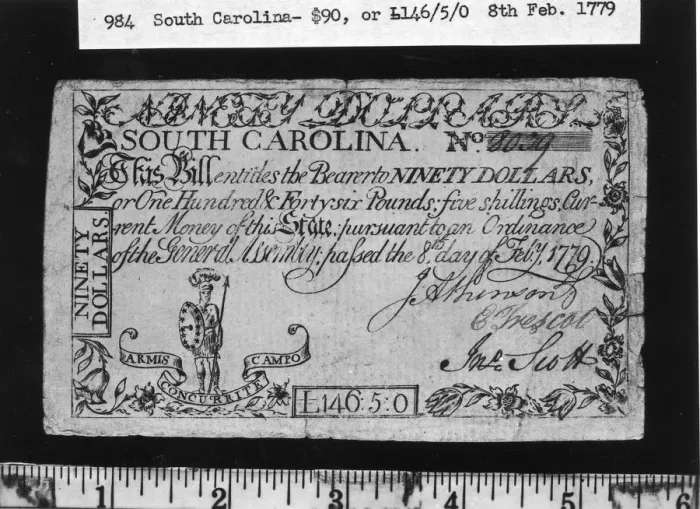 984 South Carolina- $90, or Ł146/5/0 8th Feb. 1779
NINETY DOLLARS
SOUTH CAROLINA. No. 8039
This Bill entitles the Bearer to NINETY DOLLARS,
or One Hundred & Forty six Pounds; five shillings, Cur-
rent Money of this State; pursuant to an Ordinance
of the General Assembly; passed the 8th. day of Feby. 1779.
NINETY
DOLLARS.
J Atkinson
E Trescot
Jno. Scott
ARMIS
CAMPO
CONCURRITE
Ł146:5:0
1 2 3 4 5 6